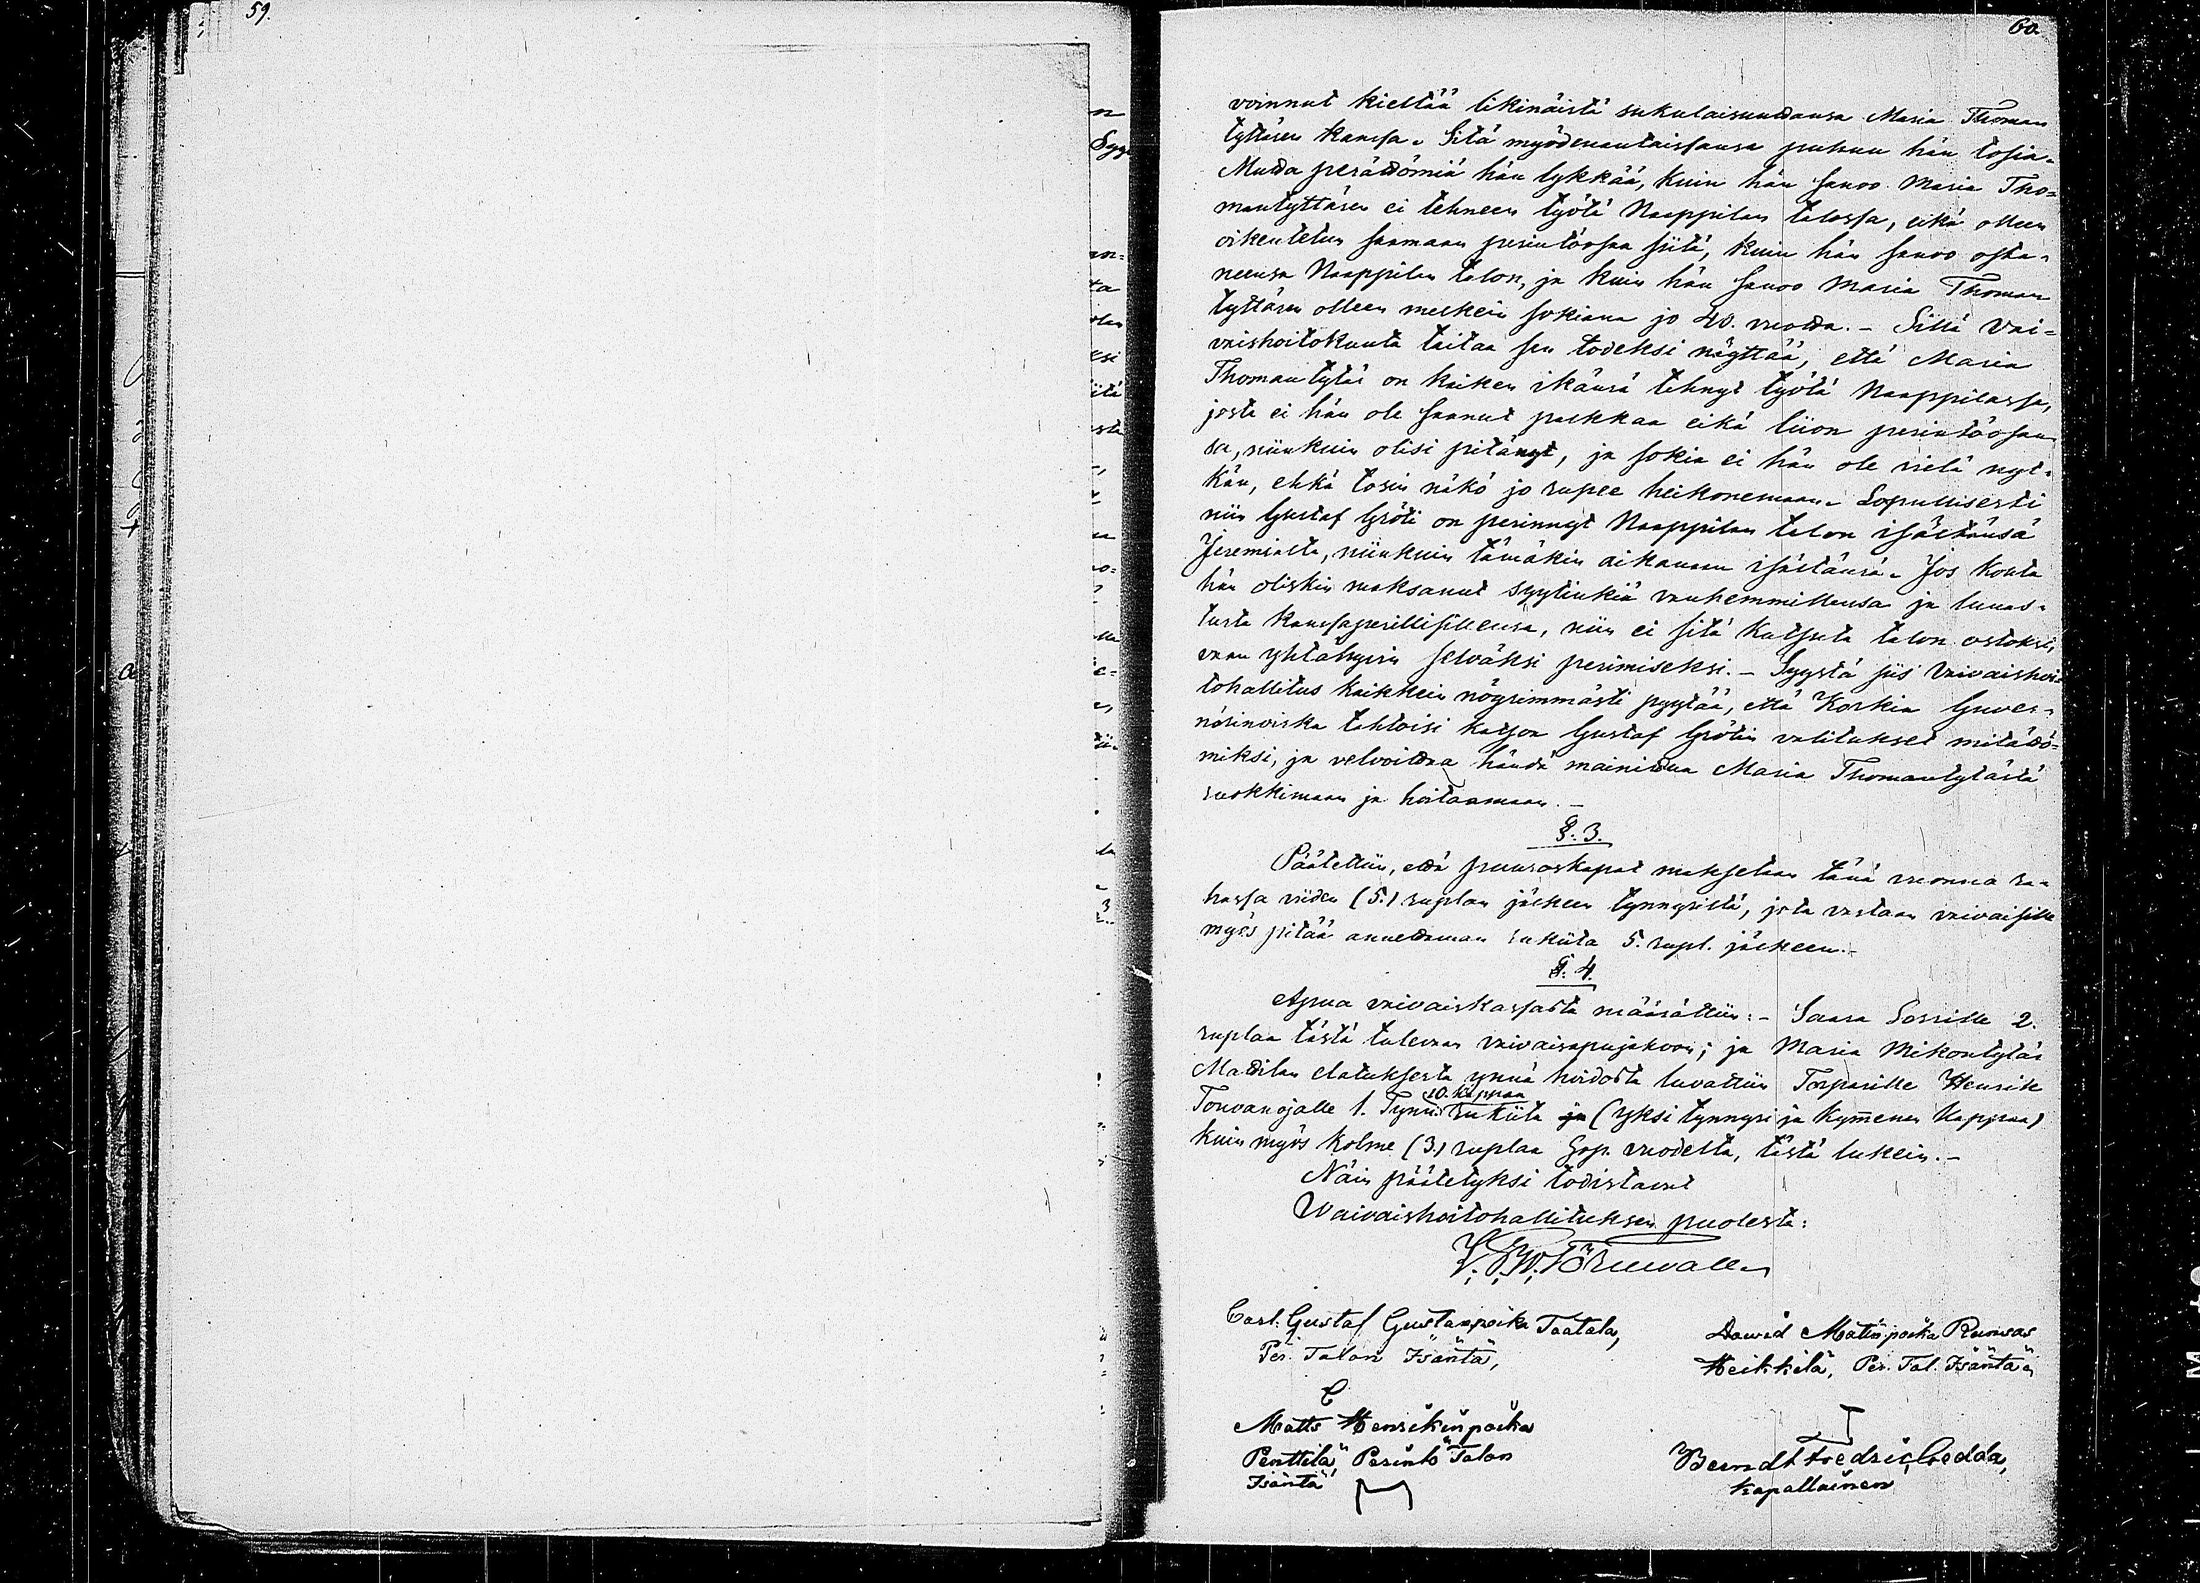 59.
60.
voinnut kieltää likinäistä sukulaisuuttansa Maria Thoman
tyttären kanssa. Sitä myödenantaissansa puhuu hän tosia.
Mutta perättömiä hän lykkää, kuin hän sanoo Maria Tho=
mantyttären ei tehneen työtä Naappilan talossa, eikä olleen
oikeutetun saamaan perintöosaa siitä, kuin hän sanoo osta=
neensa Naappilan talon, ja kuin hän sanoo Maria Thoman
tyttären olleen melkein sokiana jo 40. vuotta. – Sillä Vai=
vaishoitokunta taitaa sen todeksi näyttää, että Maria
Thomantytär on kaiken ikänsä tehnyt työtä Naappilassa,
josta ei hän ole saanut palkkaa eikä liion perintöosaan
sa, niinkuin olisi pitänyt, ja sokia ei hän ole vielä nyt=
kän, ehkä tosin näkö jo rupee heikonemaan. Lopullisesti
niin Gustaf Gröti on perinnyt Naappilan talon isältänsä
Jeremialta, niinkuin tämäkin aikanaan isältänsä. Jos kohta
hän oliskin maksanut syytinkiä vanhemmillensa ja lunas=
tusta kanssaperillisillensa, niin ei sitä katsota talon ostoksi,
vaan yhtähyvin selväksi perimiseksi. – Syystä siis Vaivaishoi=
tohallitus kaikkein nöyrimmästi pyytää, että Korkia Guver=
nörinviraka tahtoisi katsoa Gustaf Grötin valitukset mitättö=
miksi, ja velvoittaa häntä mainittua Maria Thomantytärtä
ruokkimaan ja hoitaamaan. –
§. 3.
Päätettiin, että puuroskapat maksetaan tänä vuonna ra=
hassa viiden (5.) ruplan jälkeen tynnyristä, jota vastaan vaivaisille
myös pitää annettaman rukiita 5. rupl. jälkeen. –
§. 4.
Apua vaivaiskassasta määrättiin: – Saara Sorrille 2.
ruplaa tästä tulevaan vaivaisapujakoon; ja Maria Mikontytär
Mattilan elatuksesta ynnä hoidosta luvattiin Torparille Henrik
10. kappaa
Torvanojalle 1. Tynn. rukiita ja (yksi tynnyri ja kymenen kappaa)
kuin myös kolme (3.) ruplaa hop. vuodelta, tästä lukein. –
Näin päätetyksi todistavat
Waivaishoitohallituksen puolesta:
Carl Gustaf Gustavpoika Taatala,
Per. Talon Isäntä,
Dawid Matinpoika Runsas
Heikkilä, Per. Tal. Isäntä
Matts Henrikinpoika
Penttilä Perintö Talon
Isäntä
Berndt Fredric Gedda,
kapallainen